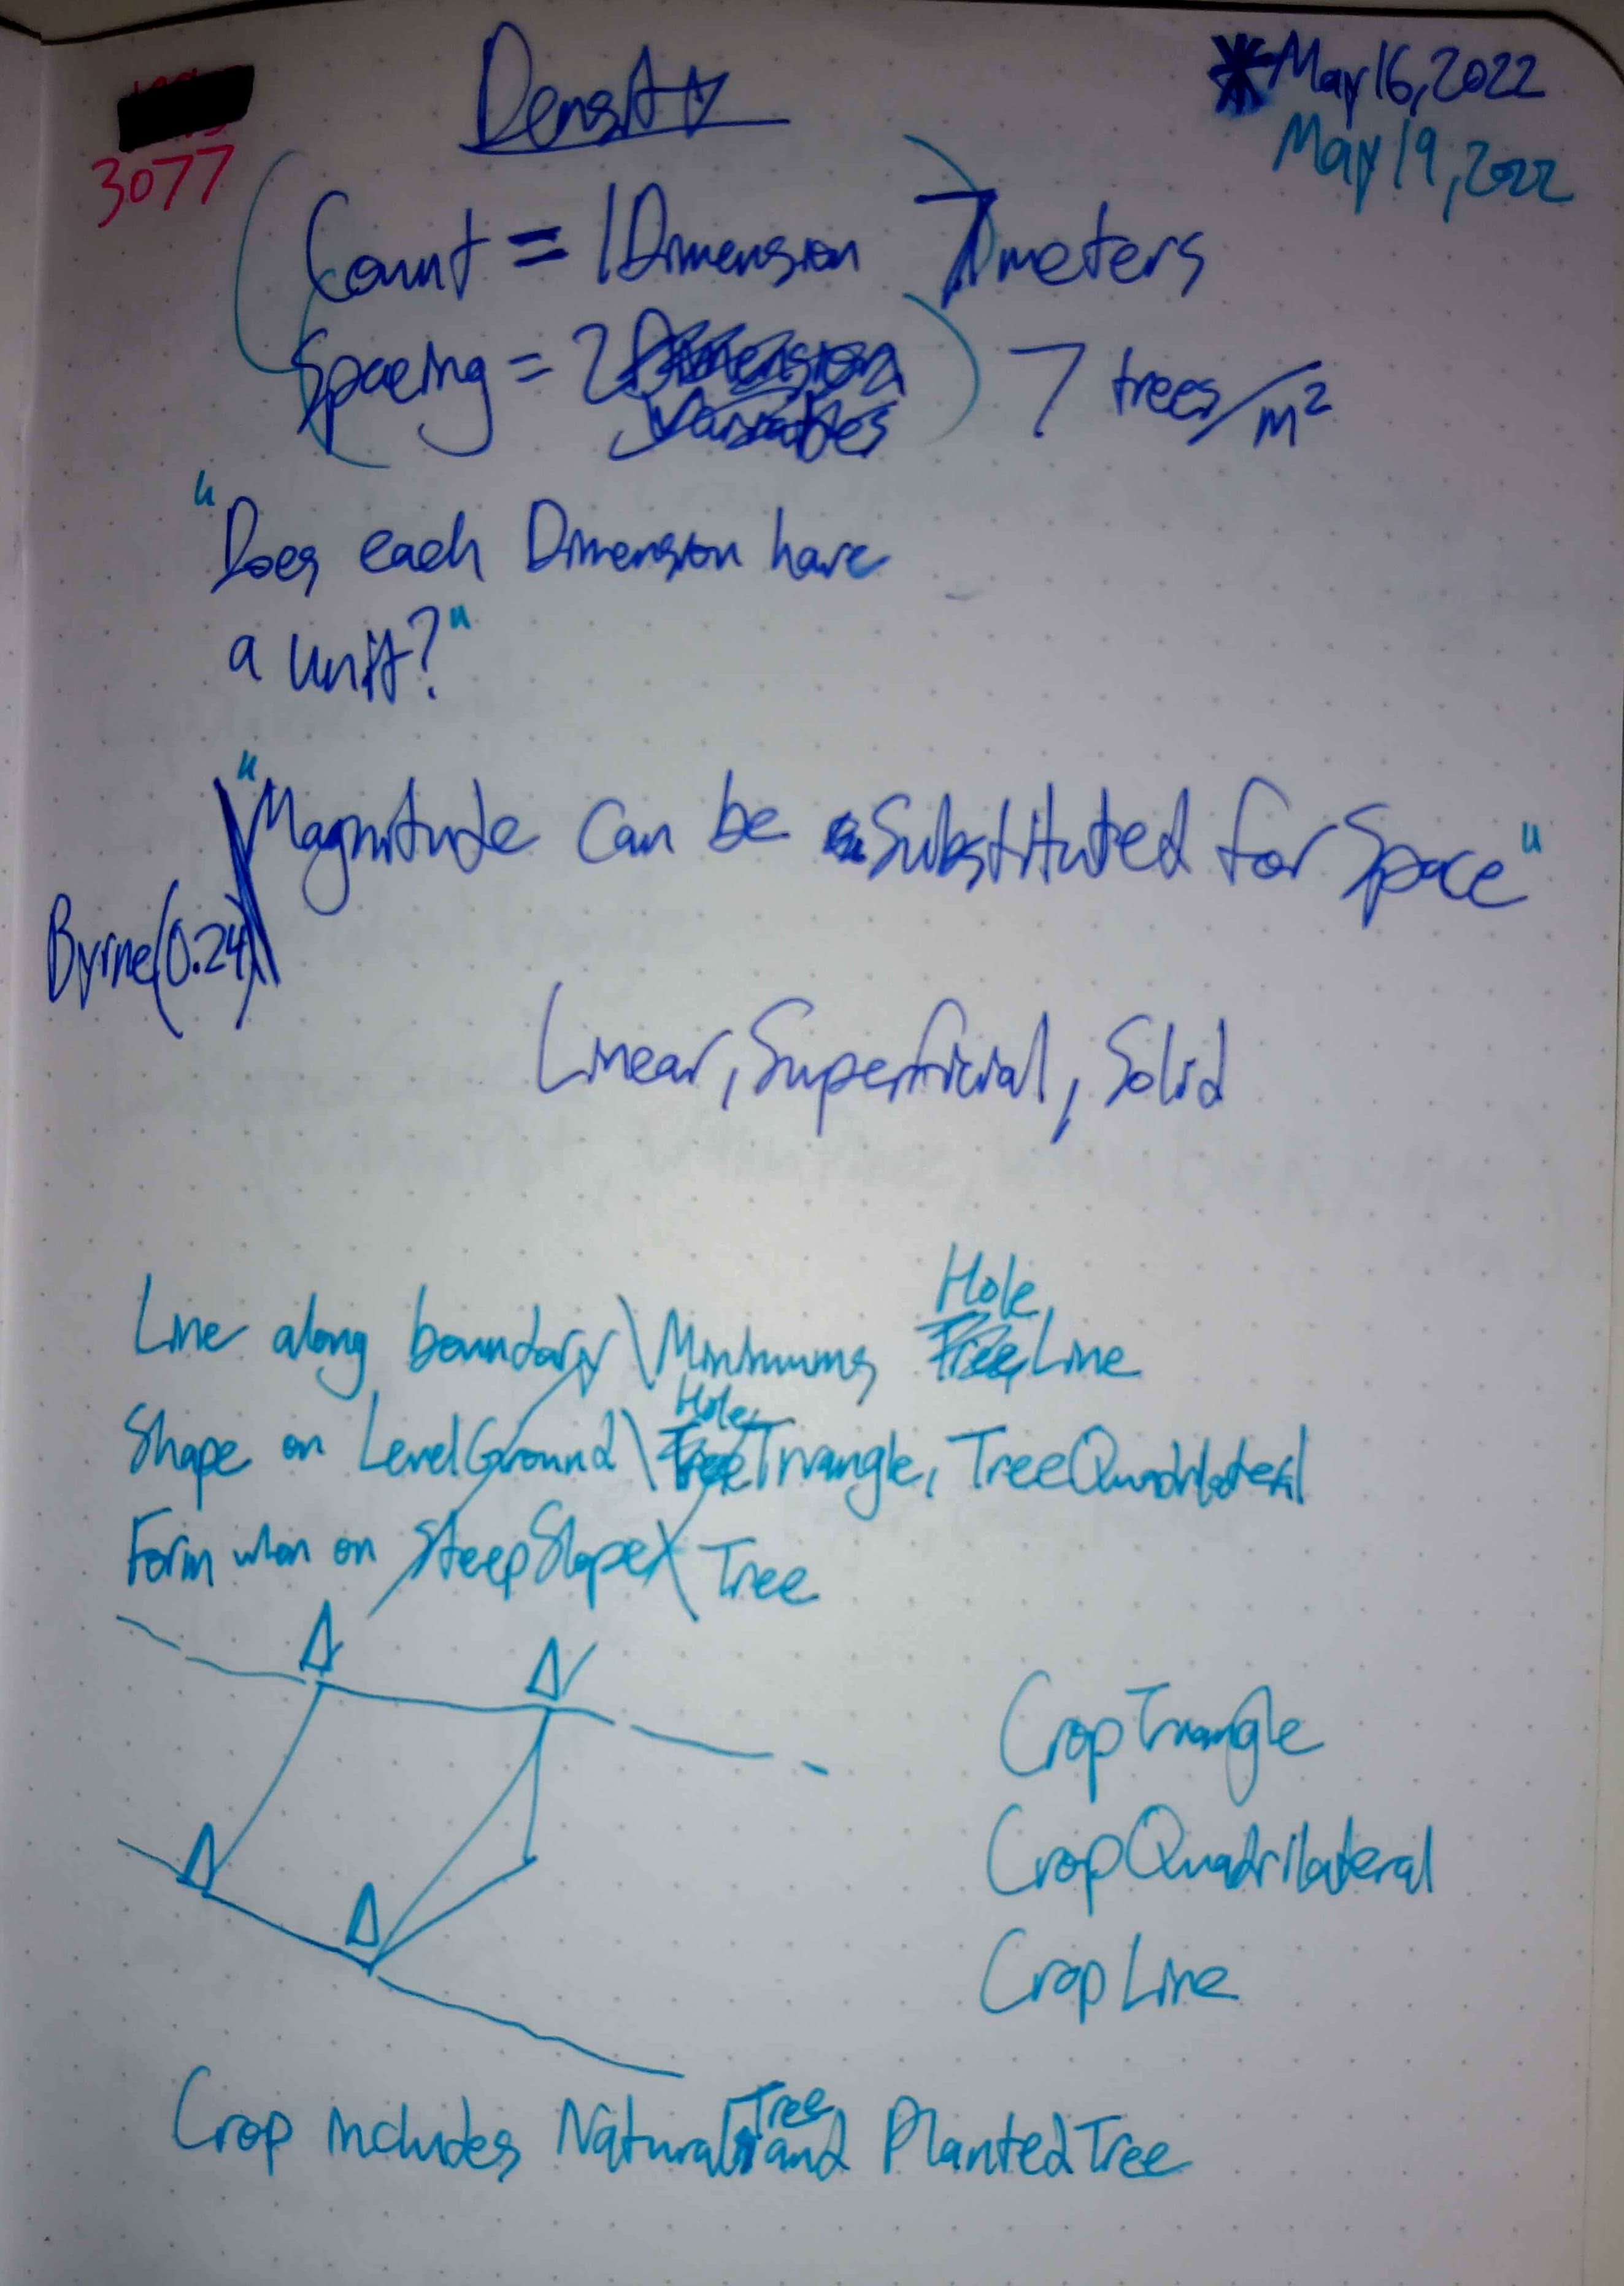 Density
*May 16, 2022
May 19, 2022
3077
Count = 1 Dimension 7 meters
Spacing = 2 Dimension 7 trees/m²
Variables
"Does each Dimension have
a unit?"
"Magnitude can be Substituted for Space"
Byrne (0.24)
Linear, Superficial, Solid
Hole
Line along boundary \ Minimums Tree Line
Hole
Shape on Level Ground \ Tree Triangle, TreeQuadrilateral
Form when on SteepSlope \ Tree
CropTriangle
CropQuadrilateral
CropLine
Tree
Crop includes Natural and PlantedTree